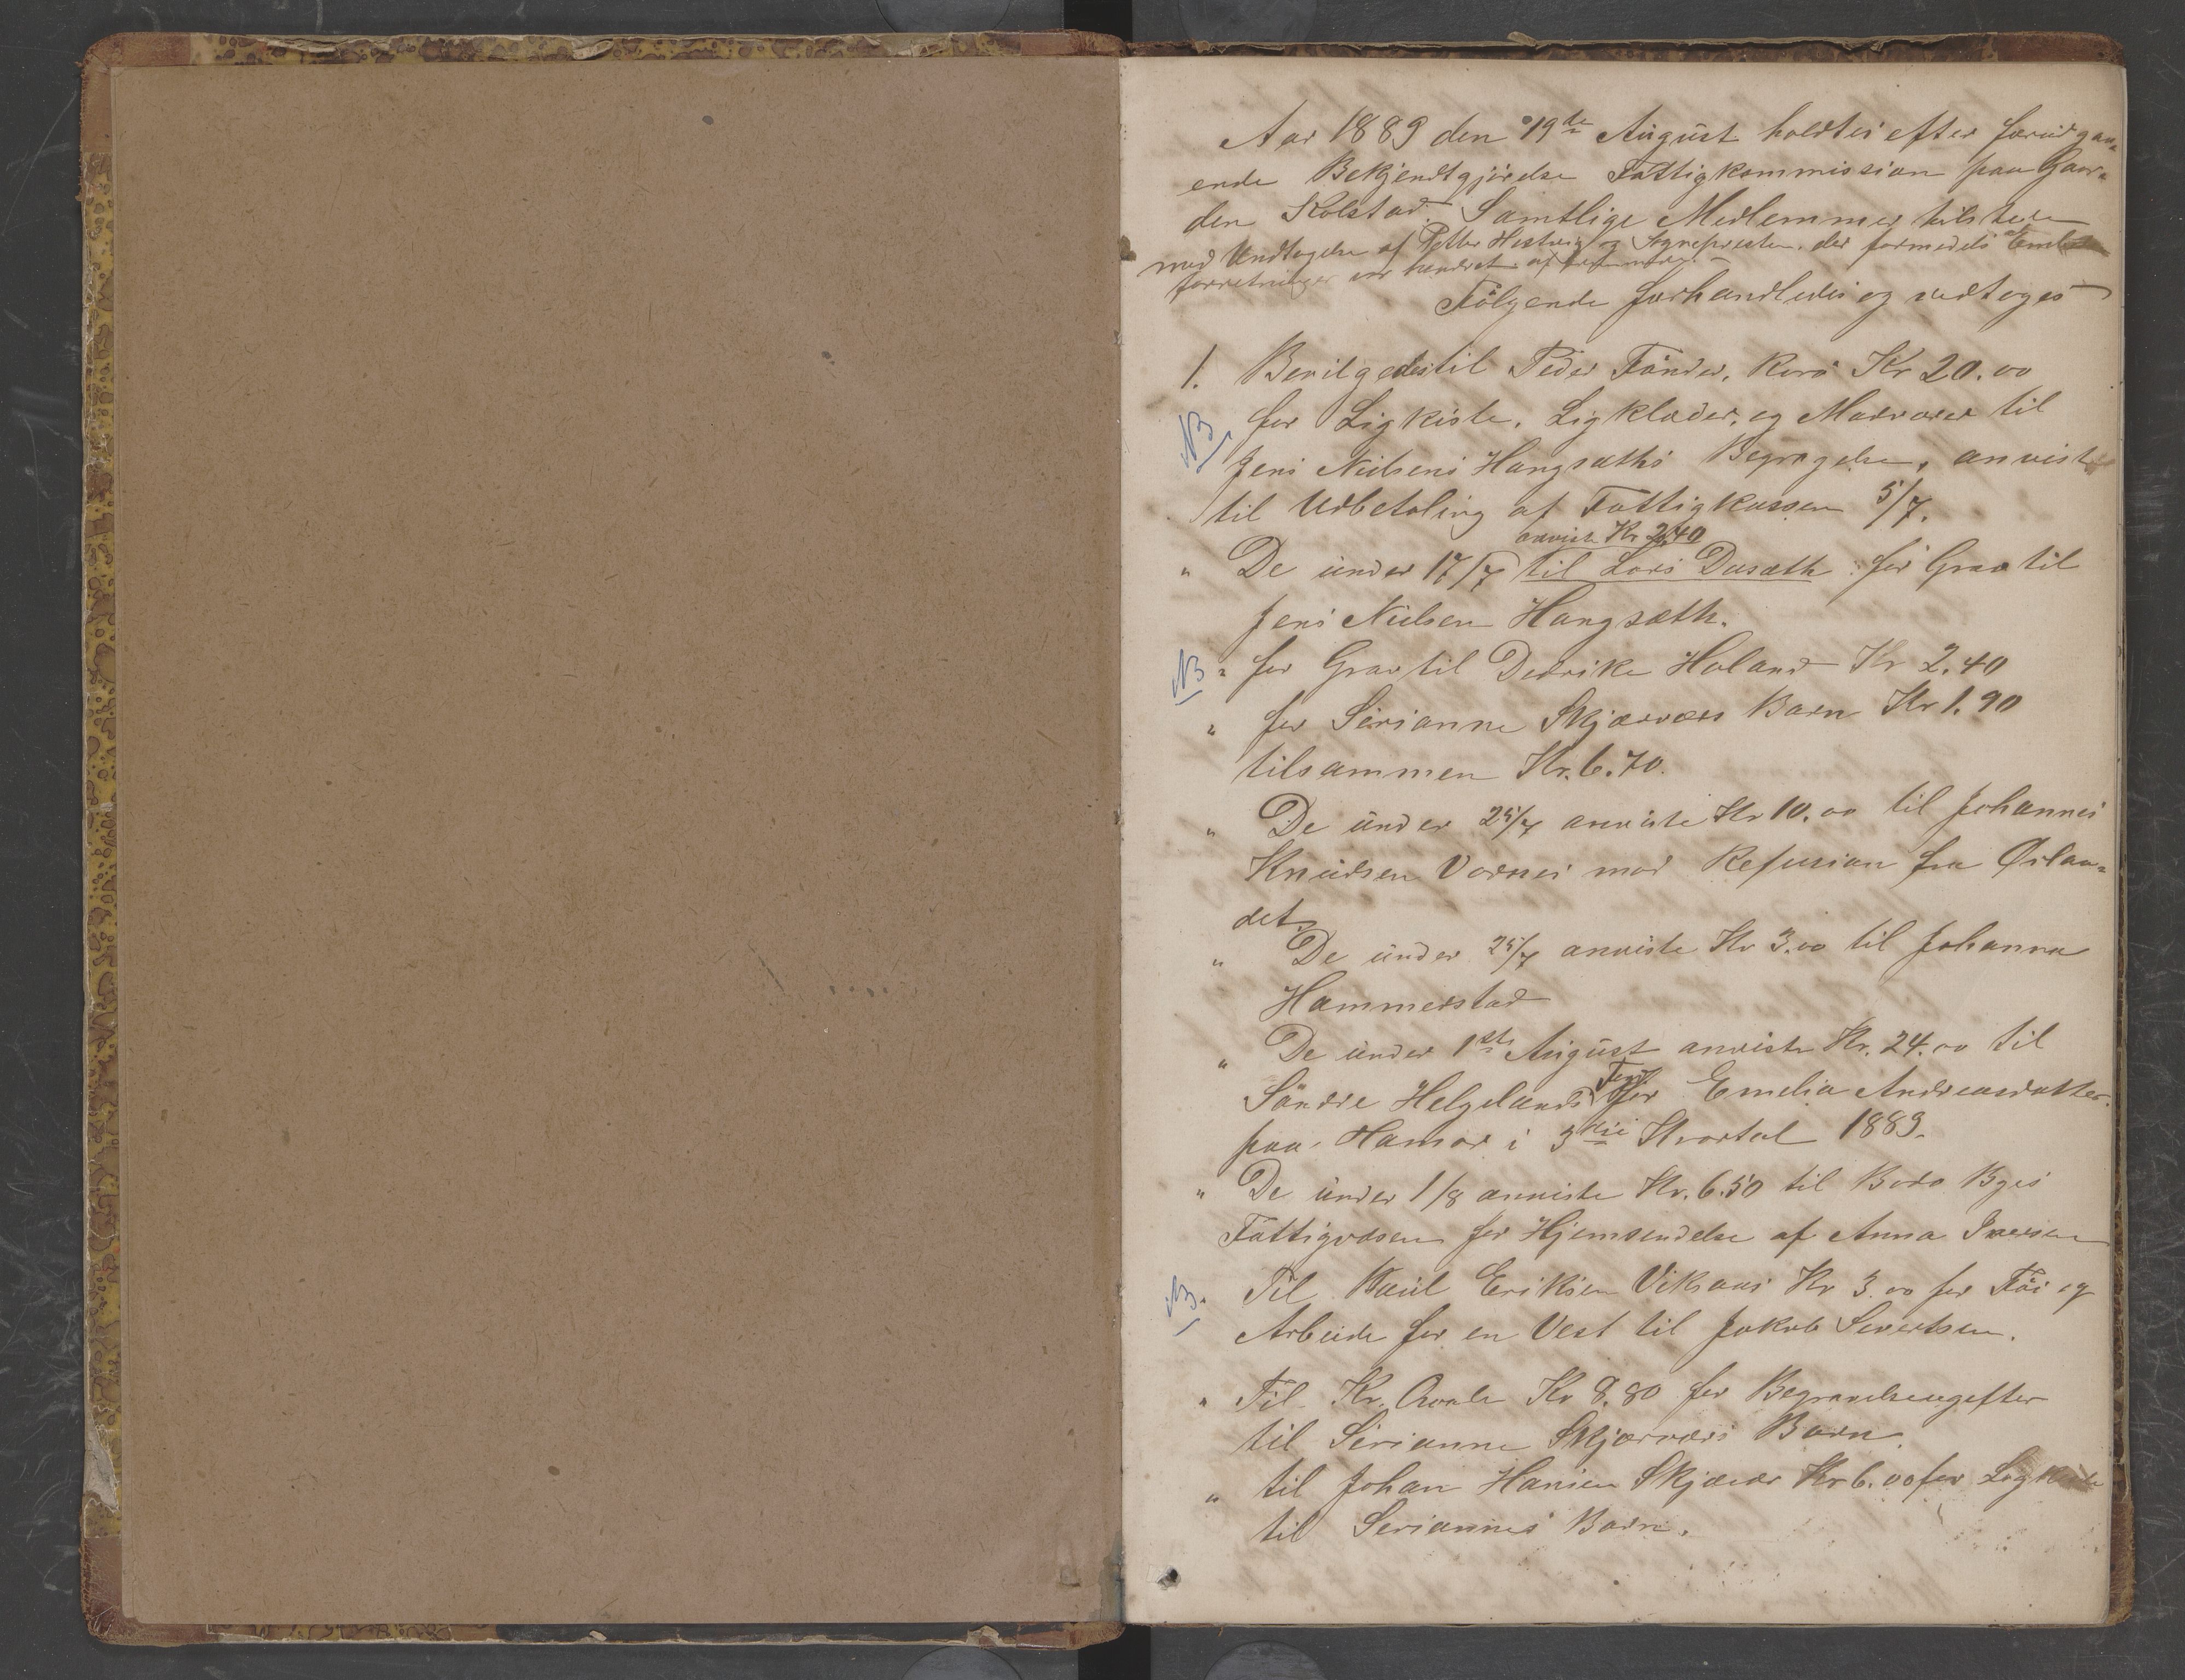 Aar 1889 den 19de August holdtes efter forudgaa-
ende Bekjendtgjörelse Fattigkommission paa Gaar-
den Kolstad. Samtlige Medlemmer tilstede
med Undtagelse af Petter Hestvig og Sognepresten, der formedels
forretninger var hindret af
Fölgende forhandledes og vedtoges
1. Bevilgedes til Peder Kr 20.00
NB
for Ligkiste, Ligklæder, og Madvarer til
Jens Nielsens Hangsæths Begravelse, anvist
til Udbetaling af Fattigkassen 5/7.
anviste Kr 2.40
" De under 17/7 til Lars Dasæth for Grav til
Jens Nielsen Hangsæth.
NB " for Grav til Dedrike Holand Kr 2.40
" for Serianne Skjærværs Barn Kr 1.90
tilsammen Kr. 6.70.
" De under 25/7 anviste Kr 10.00 til Johannes
Knudsen Vornes mod Refusion fra Ørlan-
det.
" De under 25/7 anviste Kr 3.00 til Johanna
Hammerstad
" De under 1ste August anviste Kr. 24.00 til
Söndre Helgelands for Emelia Andreasdatter
paa Hamar i 3die Kvartal 1889.
" De under 1/8 anviste Kr. 6.50 til Bodø Byes
Fattigvæsen for Hjemsendelse af Anna Iversen
NB. Til Paul Eriksen Vikhaus Kr 3.00 for Töi og
Arbeide for en Vest til Jakob Sivertsen.
" Til Kr. Qvale Kr 8.80 for Begravelsesugifter
til Serianne Skjærværs Barn.
" til Johan Hansen Skjævær Kr 6.00 for Ligkiste
til Seriannes Barn.